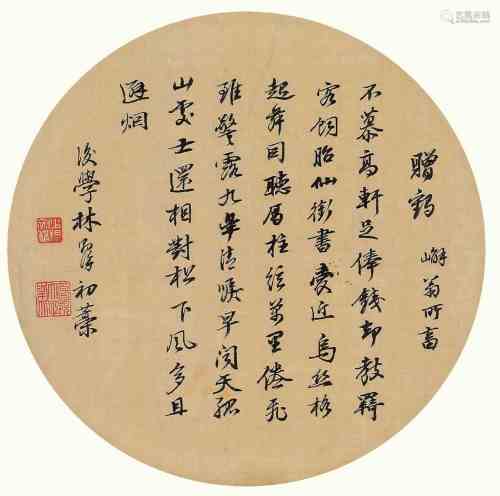 贈鶴 嶰翁所畜
不慕高軒足俸錢却教羇
客飼胎仙銜書愛近烏絲格
起舞同聽雁柱絃萬里倦飛
雖警露九皋清唳早聞天孤
山處士還相對松下風多且
避烟
後學林初藁